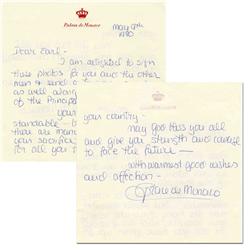 Palais de Monaco
May 9th
1980
Dear Earl -
I am delighted to sign
these photos for you and the other
men & send
as well along
of the Principal
your
standable -
there are
your sacrifice
for all you
your country -
may God bless you all
and give you strength and courage
to face the future —
with warmest good wishes
and affection -
Grace de Monaco